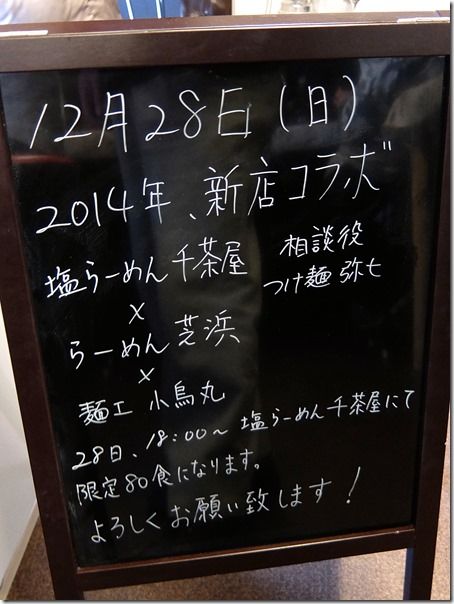 12月28日(日)
2014年、新店コラボ
塩らーめん 千茶屋
×
らーめん 芝浜
×
麺工 小烏丸
相談役
つけ麺 弥七
28日、18:00〜 塩らーめん千茶屋にて
限定80食になります。
よろしくお願い致します!